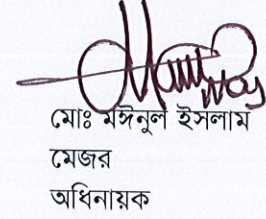 মোঃ মঈনুল ইসলাম
মেজর
অধিনায়ক